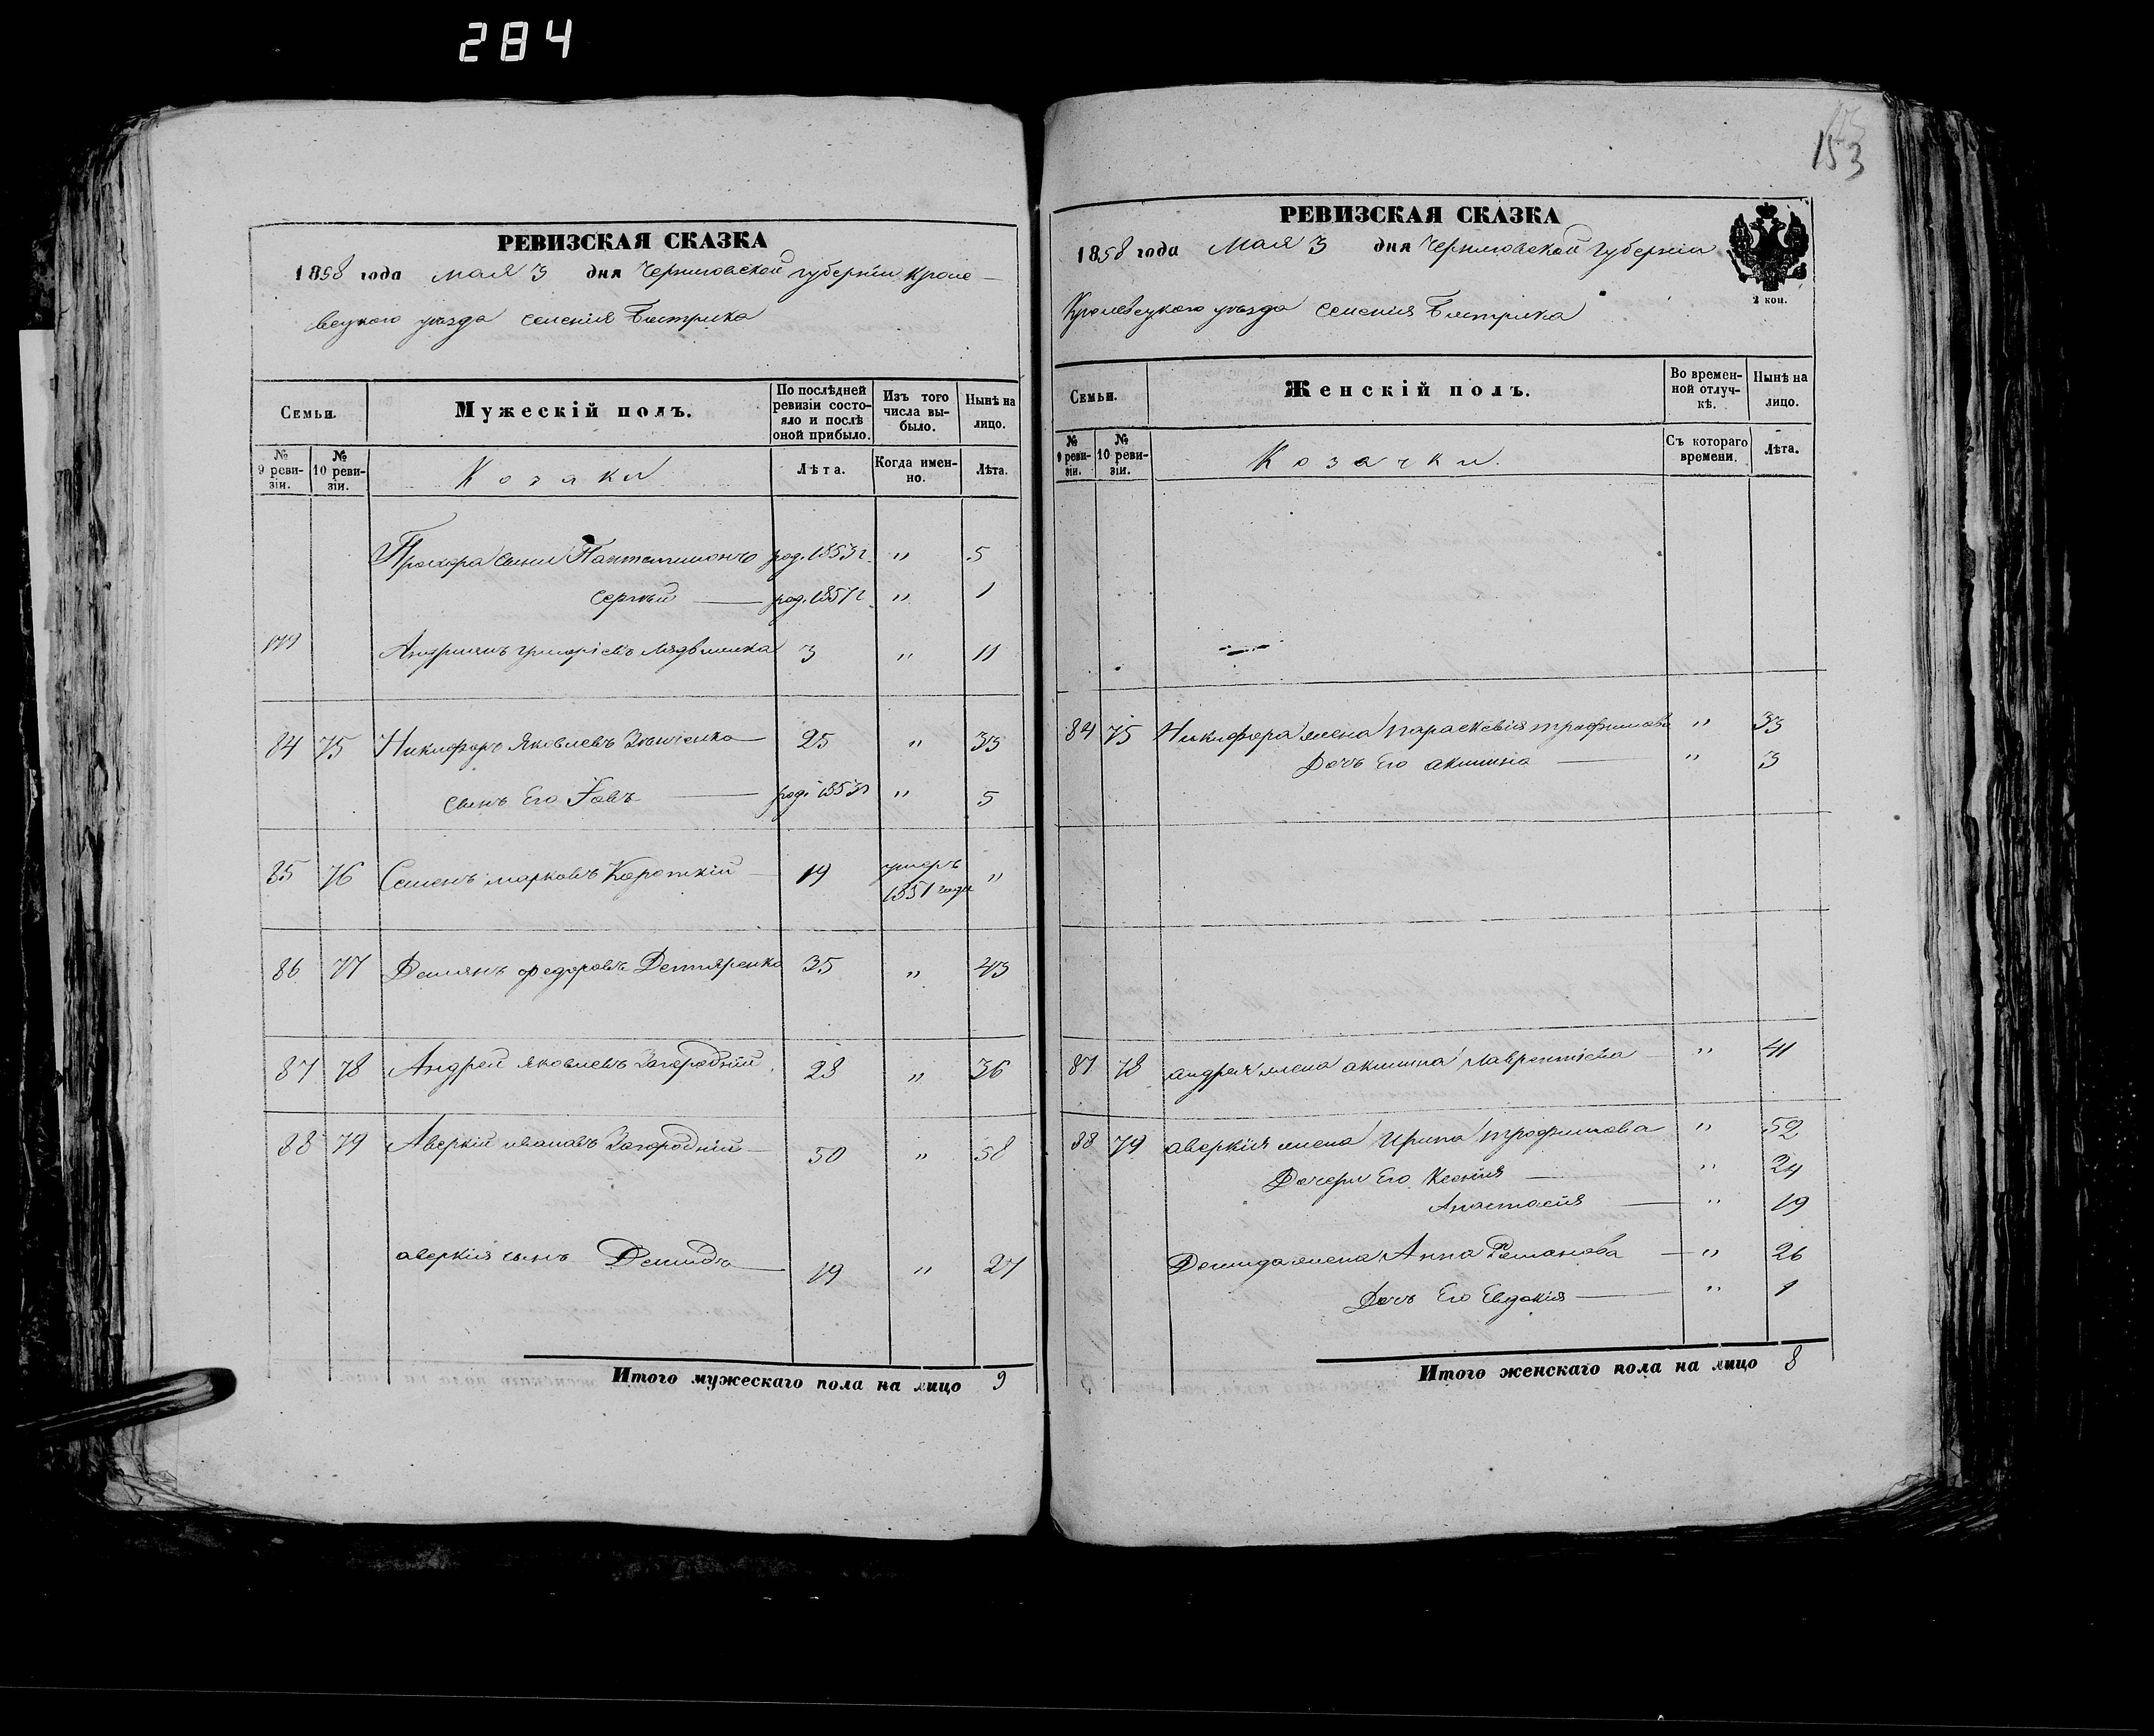 284
РЕВИЗСКАЯ СКАЗКА
1858 года мая 3 дня Черниговской губерніи Кроле-
вецкого уезда селенія Быстрика
Семьи.
Мужескій полъ.
По послѣдней ревизіи состояло и послѣ оной прибыло.
Изъ того числа выбыло.
Нынѣ на лицо.
№ 9 ревизіи.
№ 10 ревизіи.
Козаки
Лѣта.
Когда именно.
Лѣта.
Прохора сыни Пантелимонъ род. 1853 г. " 5
Сергѣй — род. 1857 г " 1
Андриянъ григоріевъ 3 " 11
84 75 Никифоръ Яковлевъ 25 " 33
сынъ Его Іовъ — род. 1853 " 5
85 76 Семенъ марковъ Короткій 19 умеръ 1851 года "
86 77 Демянъ федоровъ Дегтяренко 35 " 43
87 78 Андрей Яковлевъ Загородній 28 " 36
88 79 Аверкій ивановъ Загородній 50 " 58
аверкія сынъ Демидъ — 19 " 27
Итого мужескаго пола на лицо 9
153
РЕВИЗСКАЯ СКАЗКА
1858 года Мая 3 дня Черниговской губерніи
2 коп.
Кролевецкого уезда селенія Быстрика
Семьи.
Женскій полъ.
Во временной отлучкѣ.
Нынѣ на лицо.
№ 9 ревизіи.
№ 10 ревизіи.
Козачки
Съ котораго времени.
Лѣта.
84 75 Никифора жена параскевія трофимова " 33
Дочь Его акилина — " 3
87 78 андрея жена акилина лаврентіева — " 41
88 79 аверкія жена Ирина трофимова " 52
Дочери Его Ксенія — " 24
Анастасія — " 19
Демида жена Анна Романова — " 26
Дочь Его Евдокія — " 1
Итого женскаго пола на лицо 8